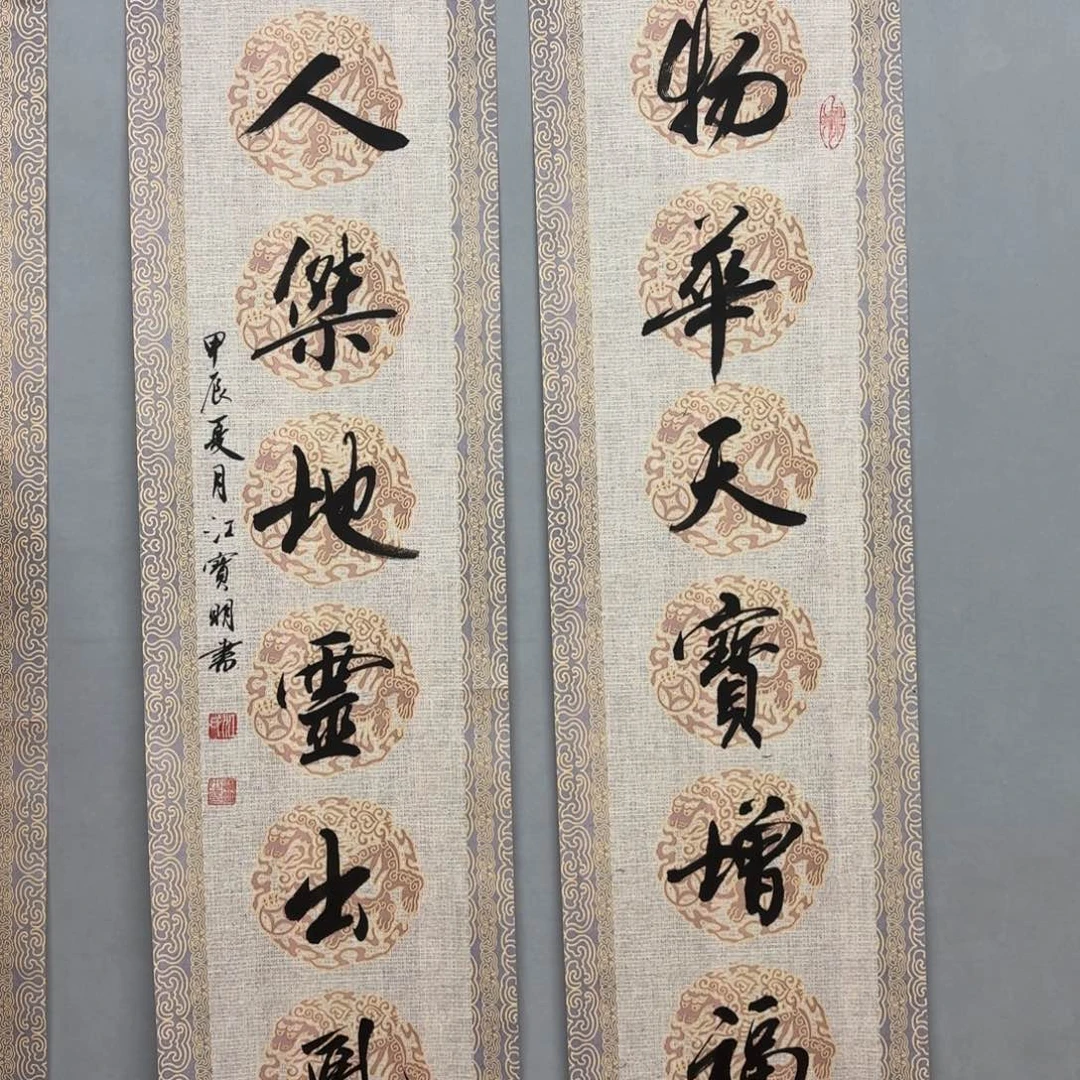 物華天寶增福
人傑地靈出
甲辰夏月江寶明書